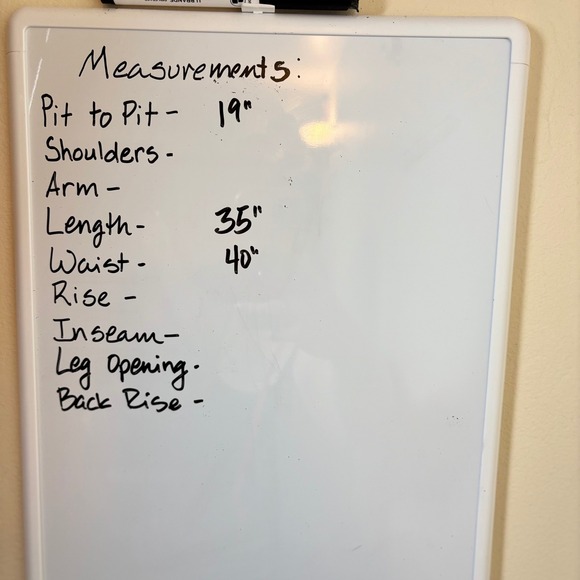 Measurements:
Pit to Pit - 19"
Shoulders -
Arm -
Length - 35"
Waist - 40"
Rise -
Inseam -
Leg Opening -
Back Rise -